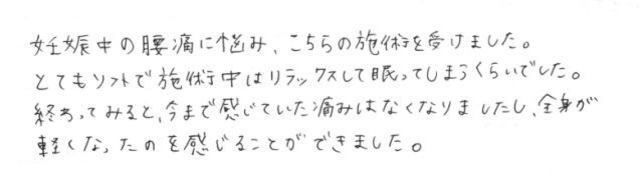 妊娠中の腰痛に悩み、こちらの施術を受けました。
とてもソフトで施術中はリラックスして眠ってしまうくらいでした。
終わってみると、今まで感じていた痛みはなくなりましたし、全身が
軽くなったのを感じることができました。